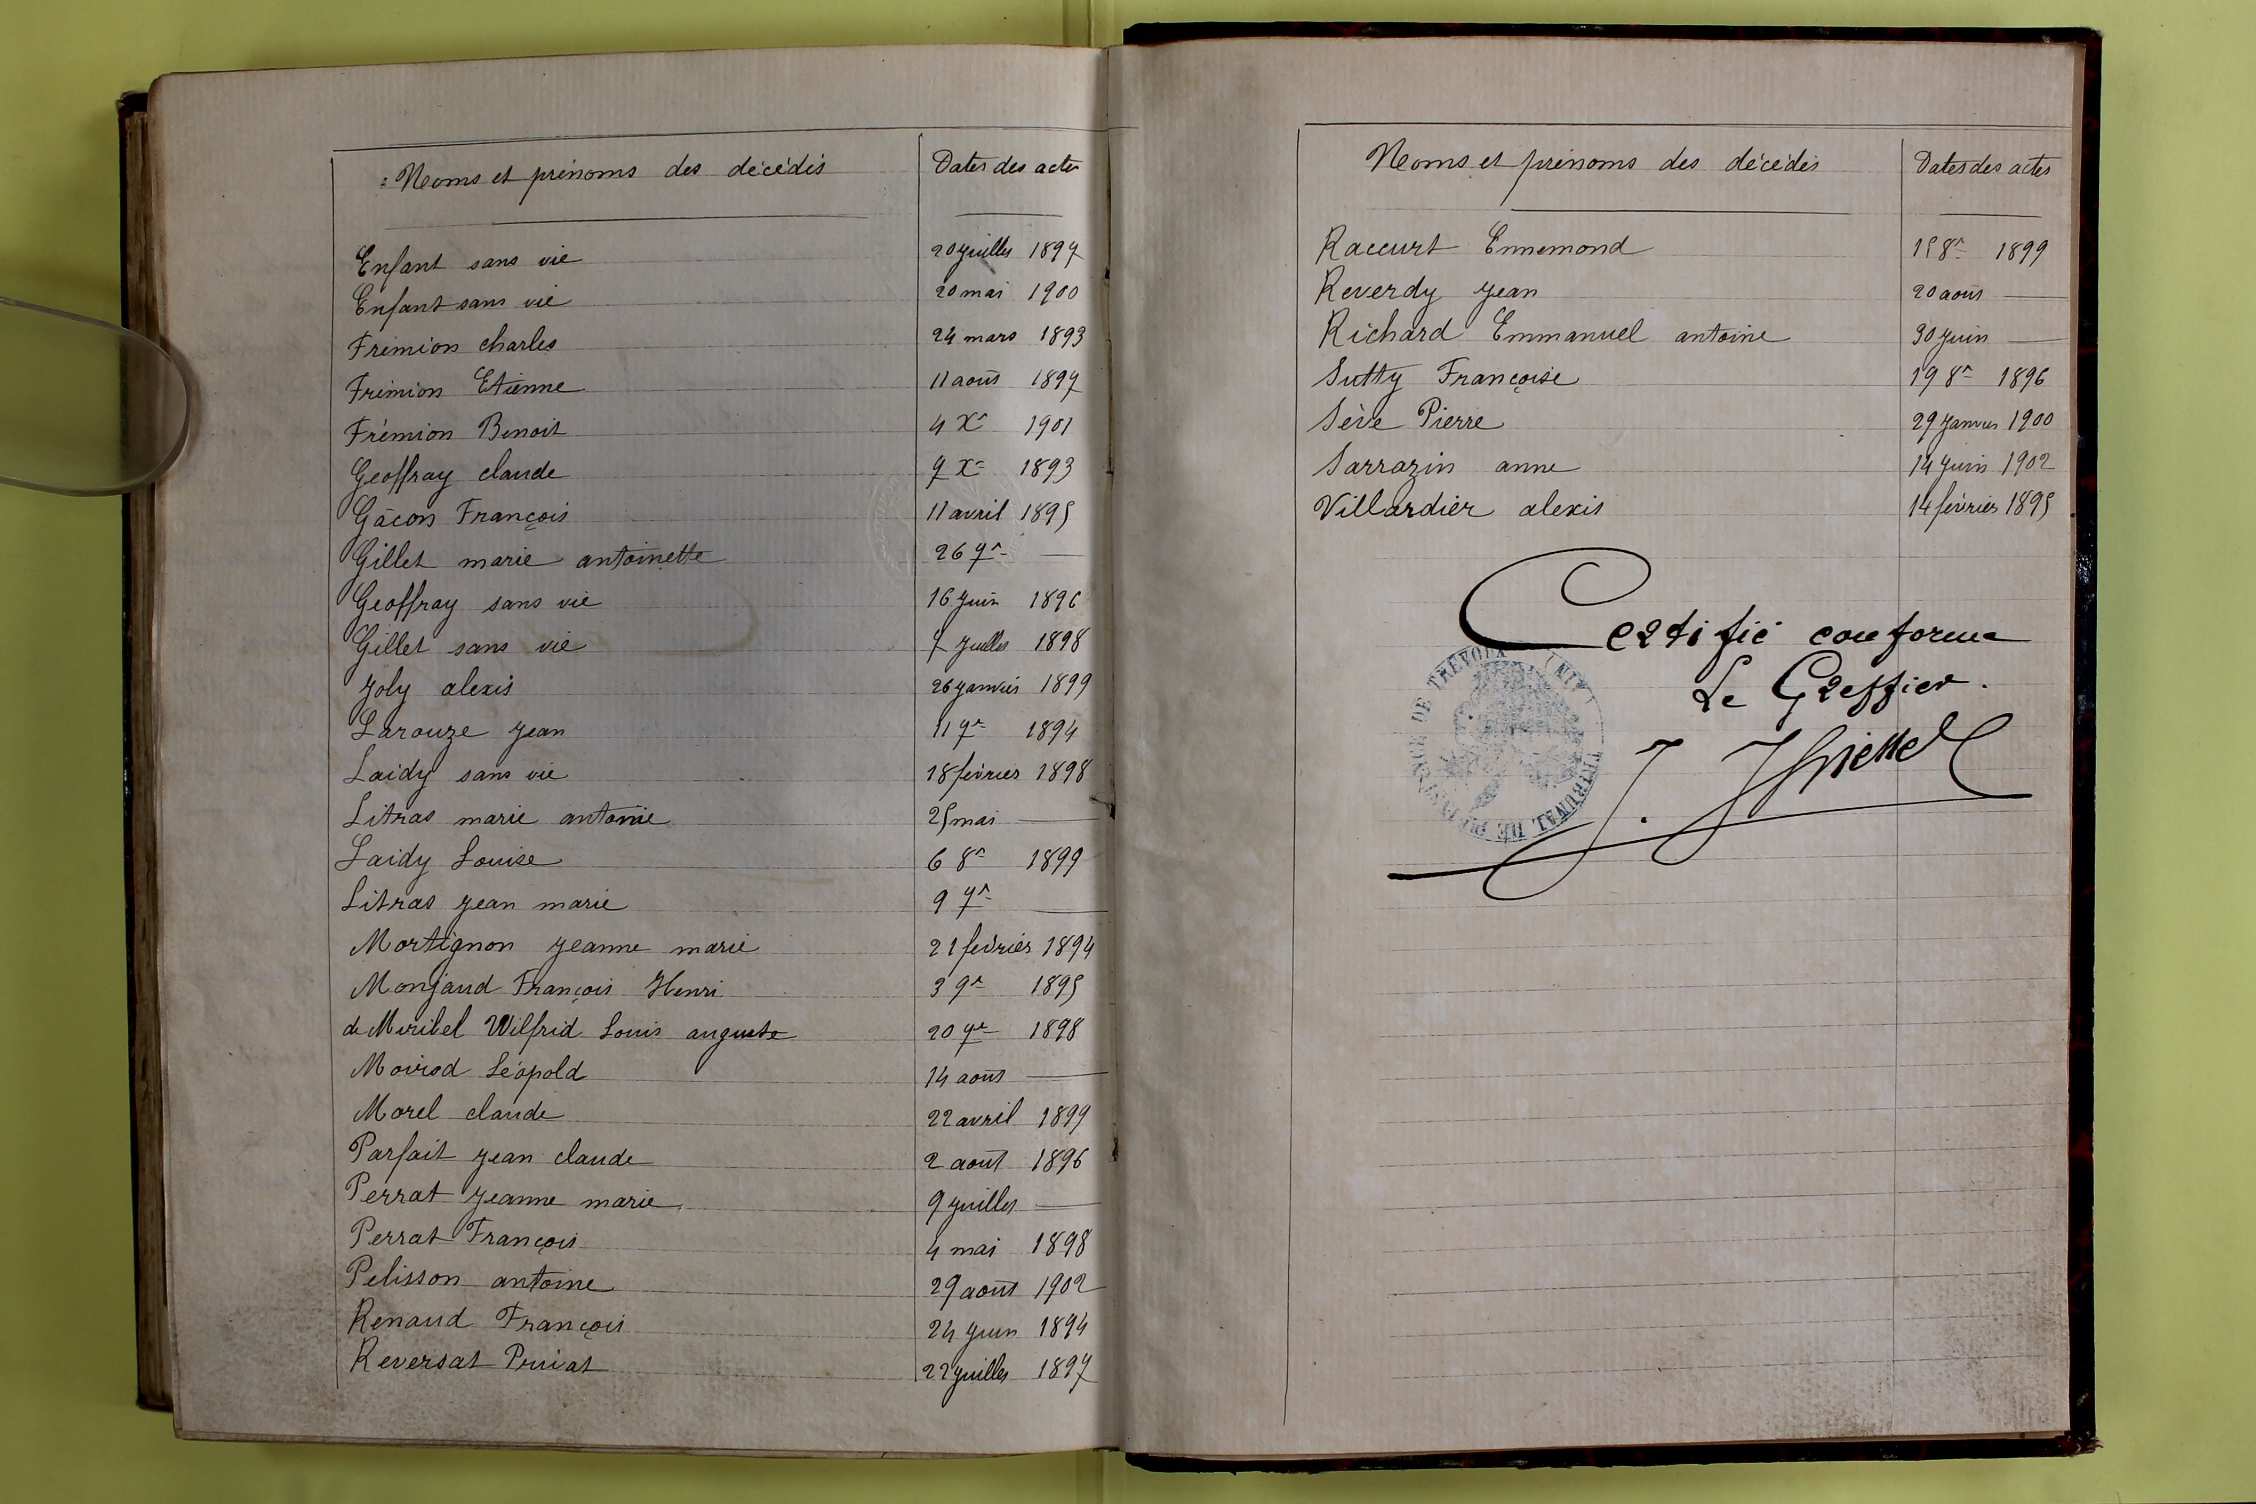 Noms et prénoms des décédés Dates des actes
Enfant sans vie 20 juillet 1897
Enfant sans vie 20 mai 1900
Frémion charles 24 mars 1893
Frémion Etienne 11 août 1897
Frémion Benoit 4 Xre 1901
Geoffray claude 7 Xre 1893
Gâcon François 11 avril 1895
Gillet marie antoinette 26 7re —
Geoffray sans vie 16 juin 1896
Gillet sans vie 7 juillet 1898
Joly alexis 26 janvier 1899
Larouze jean 11 7re 1894
Laidy sans vie 18 février 1898
Litras marie antoine 25 mai —
Laidy Louise 6 8re 1899
Litras jean marie 9 7re —
Mortignon jeanne marie 21 février 1894
Monjaud François Henri 3 9re 1895
de Miribel Wilfrid Louis auguste 20 7re 1898
Moirod Léopold 14 août —
Morel claude 22 avril 1899
Parfait jean claude 2 août 1896
Perrat jeanne marie 9 juillet —
Perrat François 4 mai 1898
Pelisson antoine 29 août 1902
Renaud François 24 juin 1894
Reversat Privat 22 juillet 1897
Noms et prénoms des décédés Dates des actes
Raccurt Ennemond 15 8re 1899
Reverdy jean 20 août —
Richard Emmanuel antoine 30 juin —
Sutty Françoise 19 8re 1896
Sève Pierre 29 janvier 1900
Sarrazin anne 14 juin 1902
Villardier alexis 14 février 1895
Certifié conforme
Le Greffier.
TRIBUNAL DE INSTANCE DE TRÉVOUX